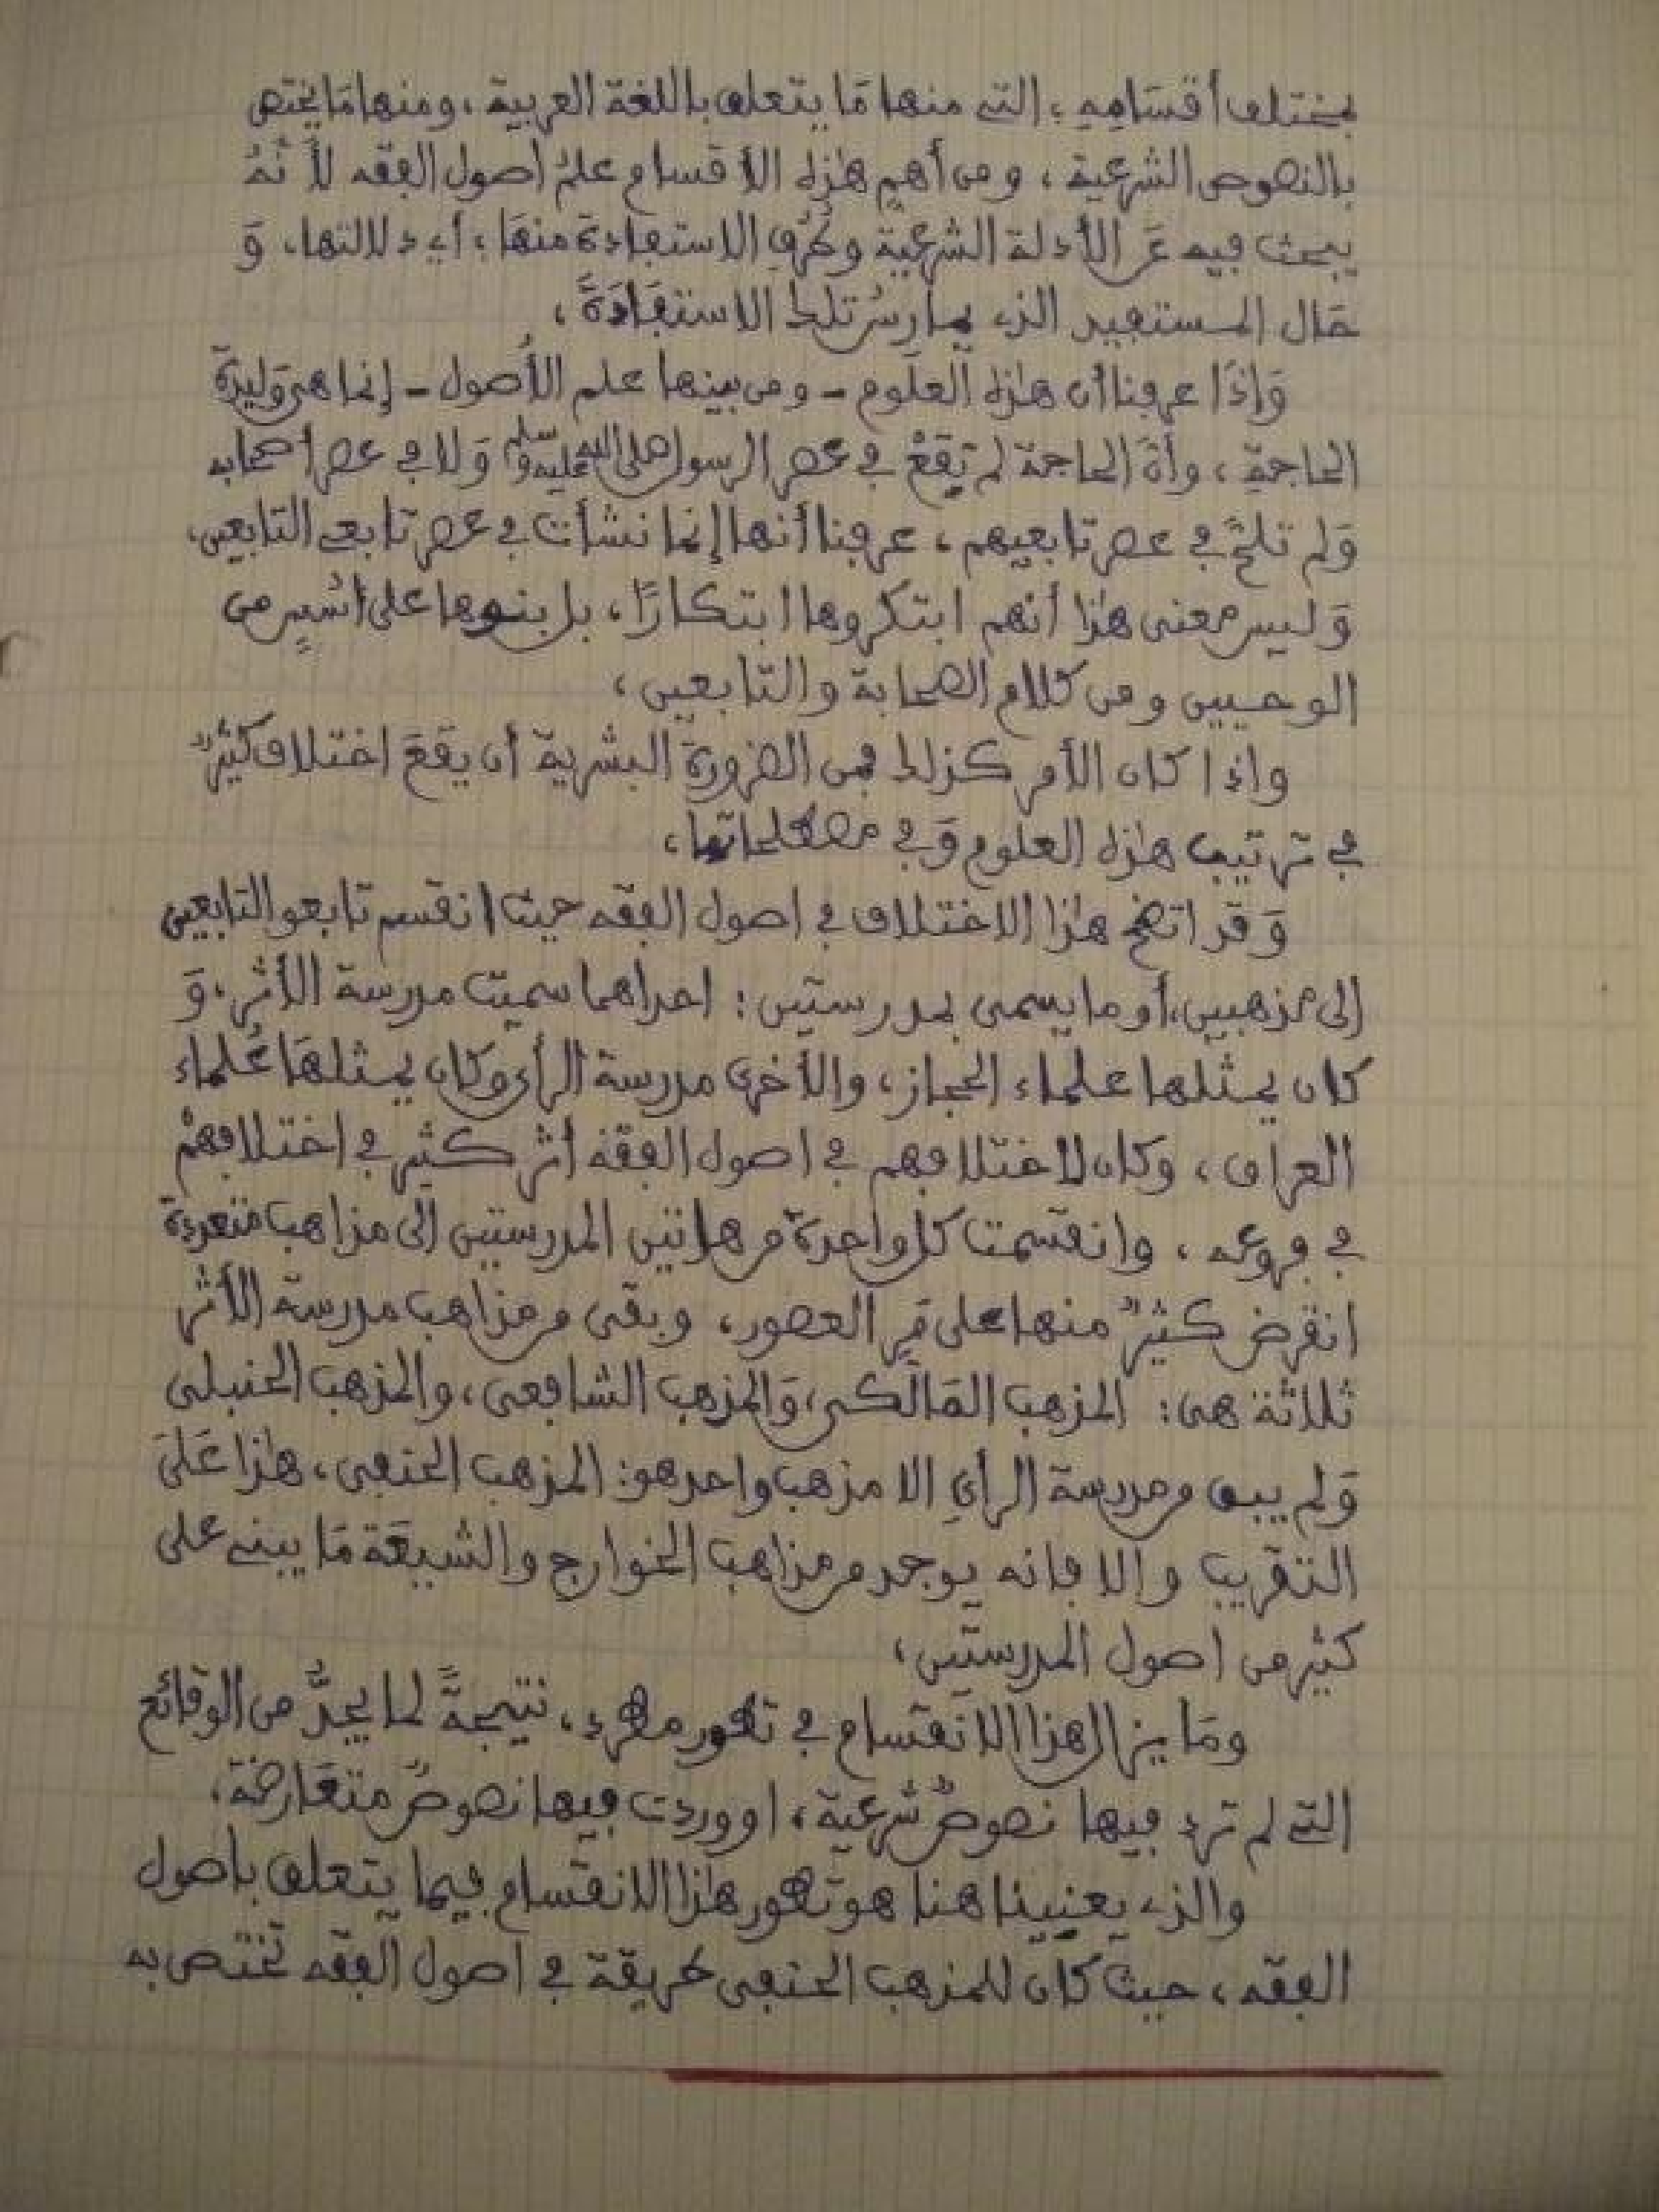 بمختلف أقسَامِهِ؛ التي منها مَا يتعلق باللغة العربية، ومنها مَا يختص
بالنصوص الشرعية، ومن أهم هٰذه الأقسام علمُ أصول الفقه لأَنَّهُ
يبحث فيه عَن الأدلة الشرعية وطُرُقِ الاستفادة منهَا؛ أي دلالتها، وَ
حَال المستفيد الذي يمارسُ تلك الاستفَادَةَ،
وَإِذَا عرفنا أن هٰذه العلوم - ومن بينها علم الأُصول - إنما هي وَليدَةُ
الحاجةِ، وأنَّ الحاجة لم تَقعْ في عصر الرسول صلى الله عليه وسلم وَلا في عصر أصحابه
وَلم تلحَّ في عصر تابعيهم، عرفنا أنها إنما نشأت في عصر تابعي التابعين،
وَليس معنى هٰذا أنهم ابتكروها ابتكارًا، بل بنوها على أُسُسٍ من
الوحيين ومن كلام الصحابة والتابعين،
وإذا كان الأمر كذلك فمن الضرورة البشرية أن يقعَ اختلاف كثيرٌ
في ترتيب هٰذه العلوم وَفي مصطلحاتها،
وَقد اتضح هٰذا الاختلاف في اصول الفقه حيث انقسم تابعو التابعين
إلى مذهبين، أو ما يسمى بمدرستين: احداهما سميت مدرسة الأثر، وَ
كان يمثلها علماء الحجاز، والأخرى مدرسة الرأي وكان يمثلهَا عُلماء
العراق، وكان لاختلافهم في اصول الفقه أثر كثير في اختلافهمْ
في فروعه، وانقسمت كل واحدة من هاتين المدرستين إلى مذاهب متعددة
انقرض كثيرٌ منها على مَرِّ العصور، وبقى من مذاهب مدرسة الأثر
ثلاثة هى: المذهب المَالكي، وَالمذهب الشافعى، والمذهب الحنبلى
وَلم يبق من مدرسة الرأيِ إلا مذهب واحد هو: المذهب الحنفى، هٰذا عَلىَ
التقريب وإلا فإنه يوجد من مذاهب الخوارج والشيعَة مَا يبنى على
كثير من اصول المدرستين،
ومَا يزال هذا الانقسام في تطور مطرد، نتيجةً لما يجدُّ من الوقائع
التي لم ترد فيها نصوصٌ شرعية، او وردت فيها نصوصٌ متعَارضة،
والذي يعنينا هنا هو تطور هٰذا الانقسام فيما يتعلق بأصول
الفقه، حيث كان للمذهب الحنفى طريقة في اصول الفقه تختص به